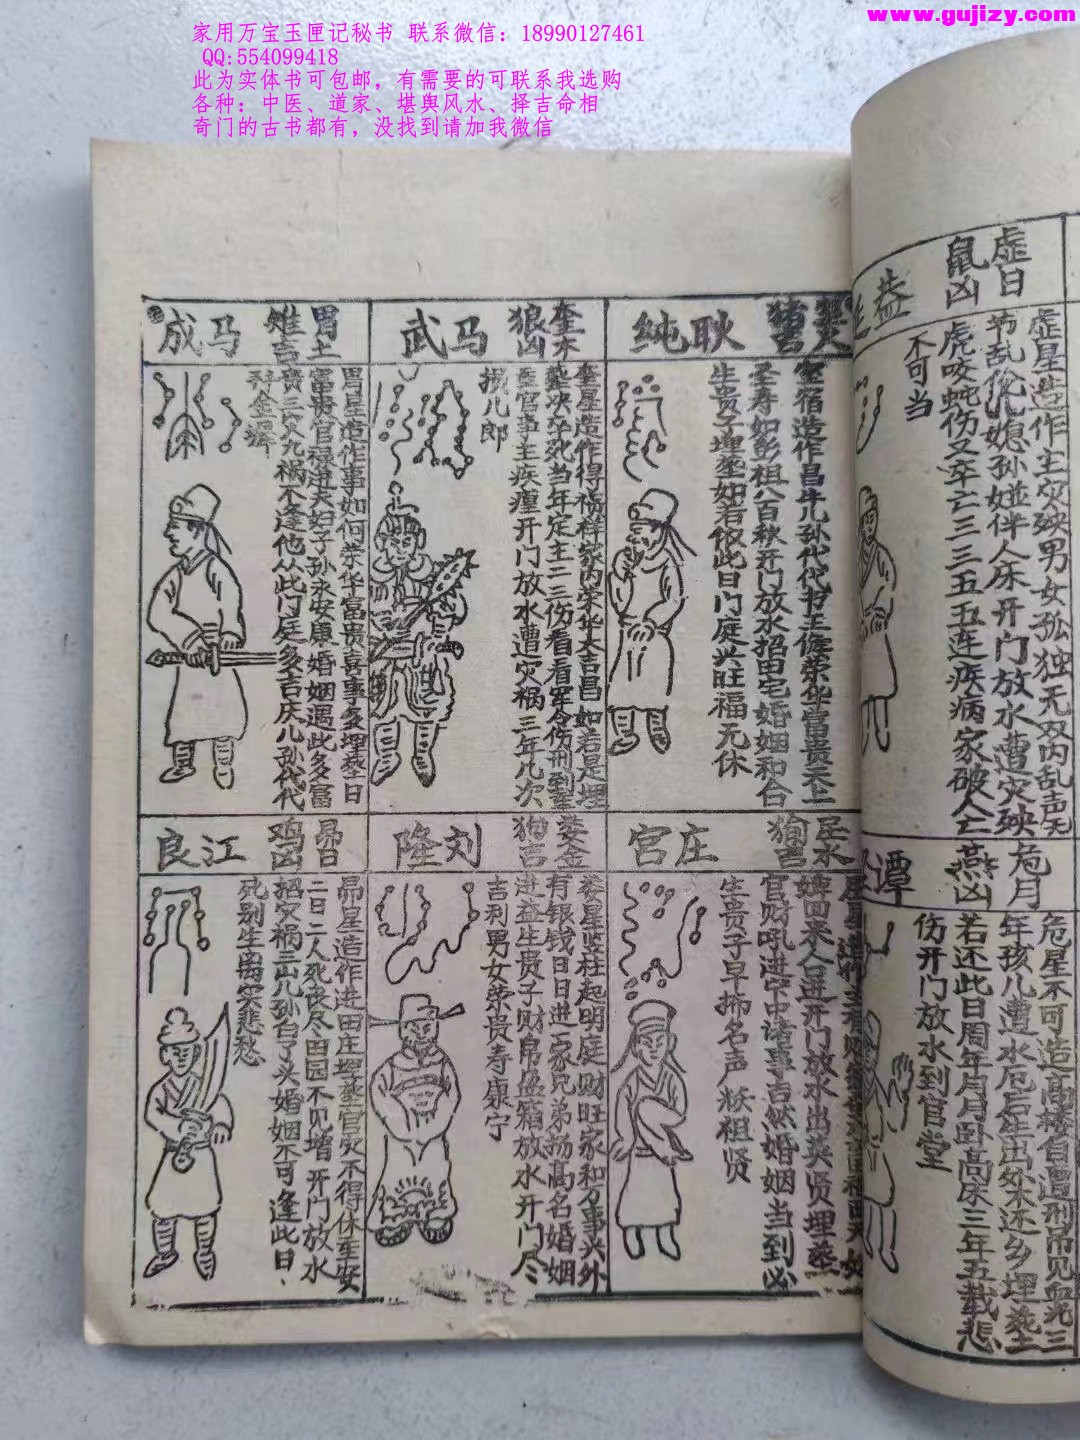 www.gujizy.com
家用万宝玉匣记秘书 联系微信：18990127461
QQ:554099418
此为实体书可包邮，有需要的可联系我选购
各种：中医、道家、堪舆风水、择吉命相
奇门的古书都有，没找到请加我微信
虚日
鼠凶
益
虚星造作主灾殃男女孤独无双内乱声无
节乱伦儿媳孙娘伴人床开门放水遭灾殃
虎咬蛇伤又卒亡三三五五连疾病家破人亡
不可当
危月
燕凶
潭
危星不可造高楼自遭刑吊见血光三
年孩儿遭水厄后生出外不还乡埋葬
若还此日周年月月卧高床三年五载悲
伤开门放水到官堂
室火
猪吉
耿纯
室宿造作昌牛儿孙代代书王侯荣华富贵天上
圣寿如彭祖八百秋开门放水招田宅婚姻和合
生贵子埋葬如若依此日门庭兴旺福无休
奎木
狼凶
马武
奎星造作得祯祥家内荣华大吉昌如若是埋
葬决卒死当年定主二三伤看看军令伤刑到重
重官事主疾瘟开门放水遭灾祸三年几次
损儿郎
胃土
雉吉
马成
胃星造作事如何荣华富贵喜事多埋葬日
富贵官禄进夫妇子孙永安康婚姻遇此多富
贵三灾九祸不逢他从此门庭多吉庆儿孙代代
拜金墀
水
狗吉
庄官
婢回来人口进开门放水出英贤埋葬
官财吼进空中诸事吉然婚姻当到必
生贵子早拂名声 祖贤
娄金
狗吉
刘隆
娄星竖柱起明庭财旺家和万事兴外
有银钱日日进一家兄弟扬高名婚姻
进益生贵子财帛盛箱放水开门尽
吉利男女荣贵寿康宁
昴日
鸡凶
江良
昴星造作进田庄埋葬官灾不得休重安
二日二人死丧尽田园不见增开门放水
招灾祸三岁儿孙白了头婚姻不可逢此日
死别生离实悲愁